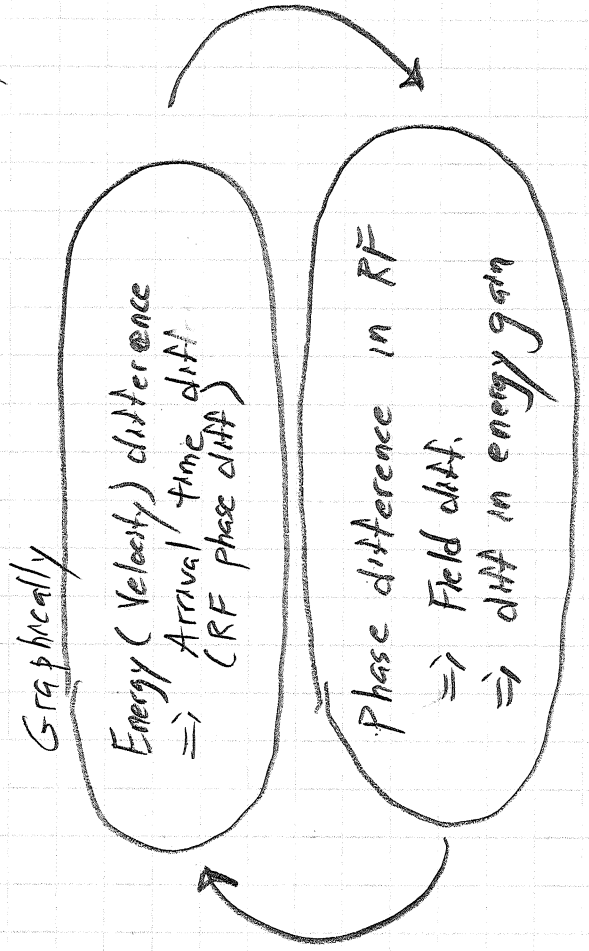 Graphically
Energy (Velocity) difference
=> Arrival time diff
(RF phase diff)
Phase difference in RF
=> Field diff.
=> diff in energy gain